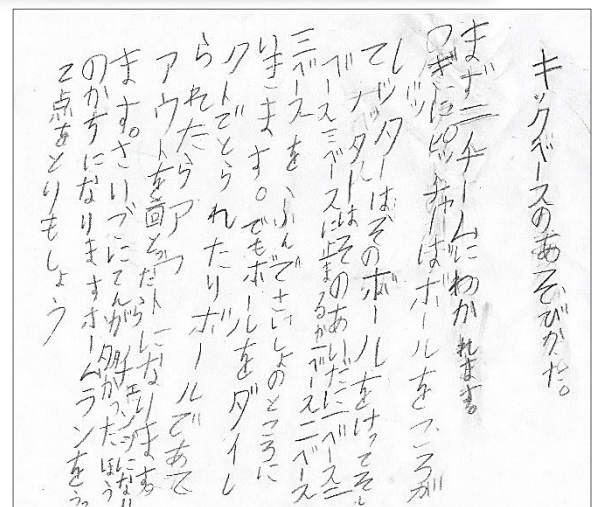 キックベースのあそびかた。
まず二チームにわかれます。
つぎにピッチャーはボールをころが
しバッターはそのボールをけってそし
てバッターはそのあいだに一ベース二
ベース三ベースに止まるか一ベース二ベース
三ベースをふんでさいしょのところに
いきます。でもボールをダイレ
クトでとられたりボールであて
られたらアウトになります。
アウトを三回とったらチェンジになり
ます。さいごにてんが多かったほう
のかちになりますホームランをうっ
2点をとりましょう